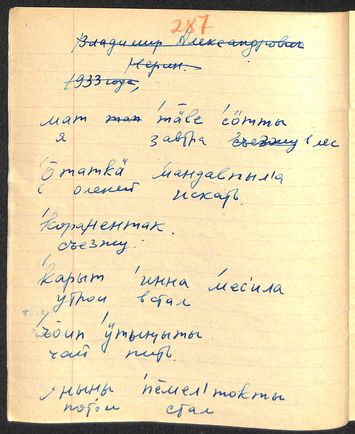 247
Владимир Александрович
Нерин.
1933 года,
мат тап тӓве сӧтты
я завтра съезжу в лес
ӧтаткӓ мандавпыла
с оленей искать.
коранентак.
съезжу.
карыт инна месила
утром встал
чай пить.
ныны пемел токты
потом стал